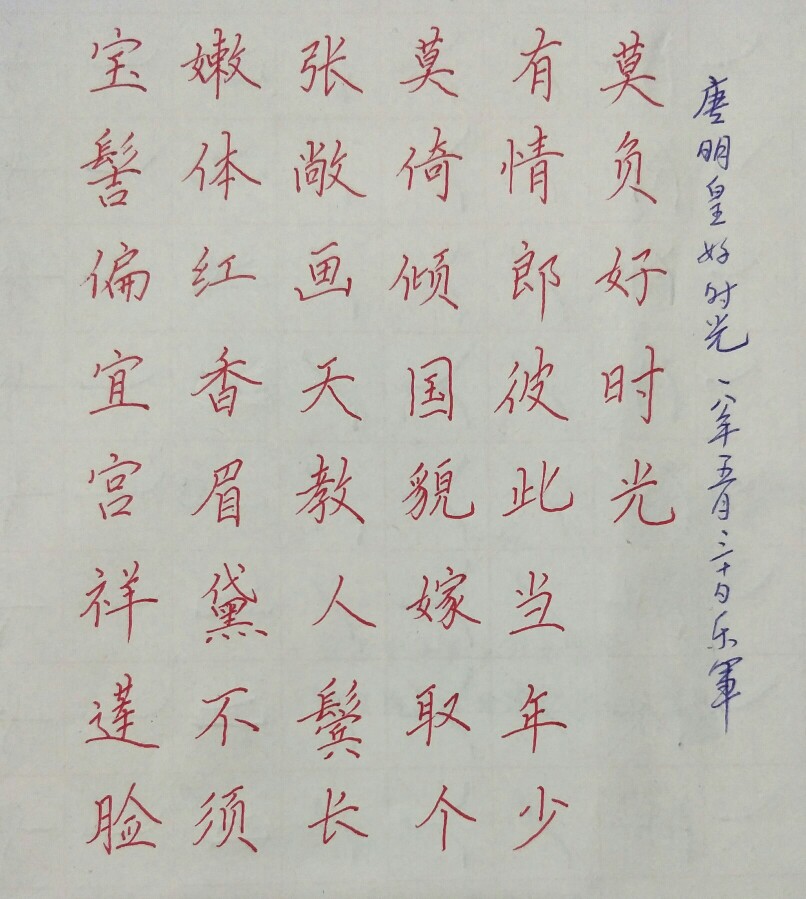 宝髻偏宜宫祥蓮脸
嫩体红香眉黛不须
张敞画天教人鬓长
莫倚倾国貌嫁取个
有情郎彼此当年少
莫负好时光
唐明皇好时光 一八年五月三十日乐軍